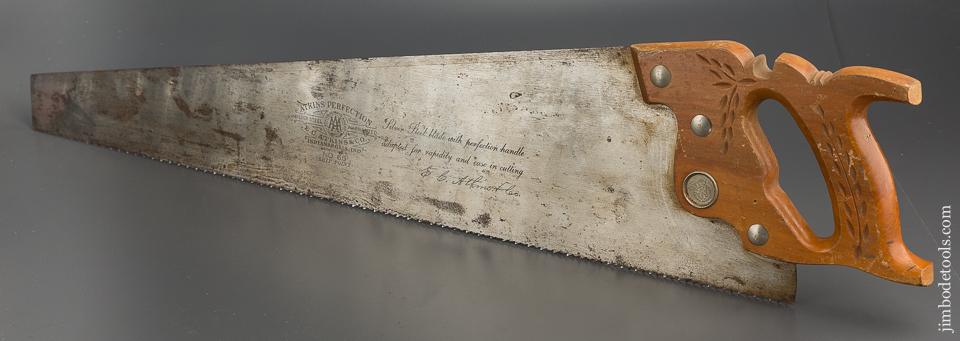 ATKINS PERFECTION
E.C. ATKINS & CO.
INDIANAPOLIS, IND.
NO 65
Silver Steel blade with perfection handle
adapted for rapidity and ease in cutting
E. C. Atkins & Co.
jimbodetools.com